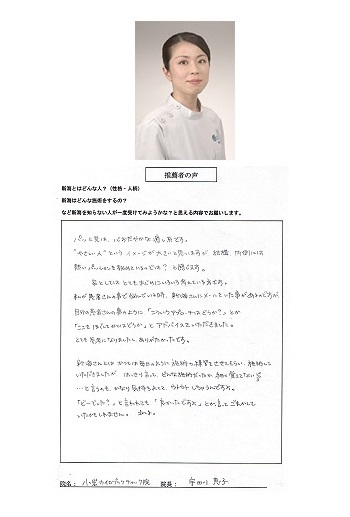 推薦者の声
新海とはどんな人？（性格・人柄）
新海はどんな施術をするの？
など新海を知らない人が一度受けてみようかな？と思える内容でお願いします。
パッと見は、心おだやかな癒し系です。
"やさしい人"というイメージが大きいと思いますが 結構 内側には
熱いパッションを秘めているのでは？と感じます。
私が患者さんの事で悩んでいる時、新海さんにメールした事があるのですが、
自分の患者さんの事のように「こういうアプローチはどうか？」とか
「ここをほぐしてみてはどうか」とアドバイスをいただきました。
とても参考になりましたし、ありがたかったです。
新海さんとは かつては毎日のように施術の練習をさせてもらい、施術して
いただきましたが はっきり言って、どんな施術だったか、細かく覚えてない
…と言うのも、かなり気持ちよくて、ウトウトしちゃうんですよ。
「どーだった？」と言われても「良かったですよ」とか言って ごまかして
いたかもしれません。
院名： 小岩カイロプラクティック院 院長： 宇田川 恵子